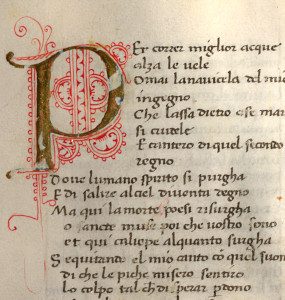 Per correr miglior acque
alza le vele
Omai la navicela del mio
ingegno
Che lassa dietro a se mar
si crudele
E cantero di quel secondo
regno
Doue lumano spirito si purgha
E di salire al ciel diuenta degno
Ma qui la morte poesi risurgha
o sancte muse poi che uostro sono
et qui caliope alquanto surgha
Sequitando el mio canto cō quel suon
di che le piche misero sentiro
lo colpo tal ch di sperar pdono